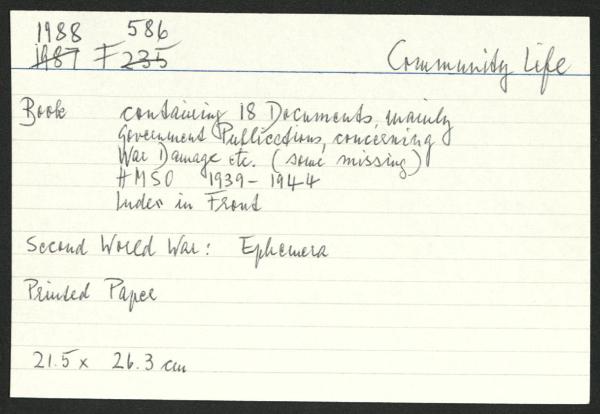 1988 586
1987 F 235
Community Life
Book containing 18 Documents, mainly
Government Publications, concerning
War Damage etc. (some missing)
HMSO 1939-1944
Index in Front
Second World War: Ephemera
Printed Paper
21.5 x 26.3 cm